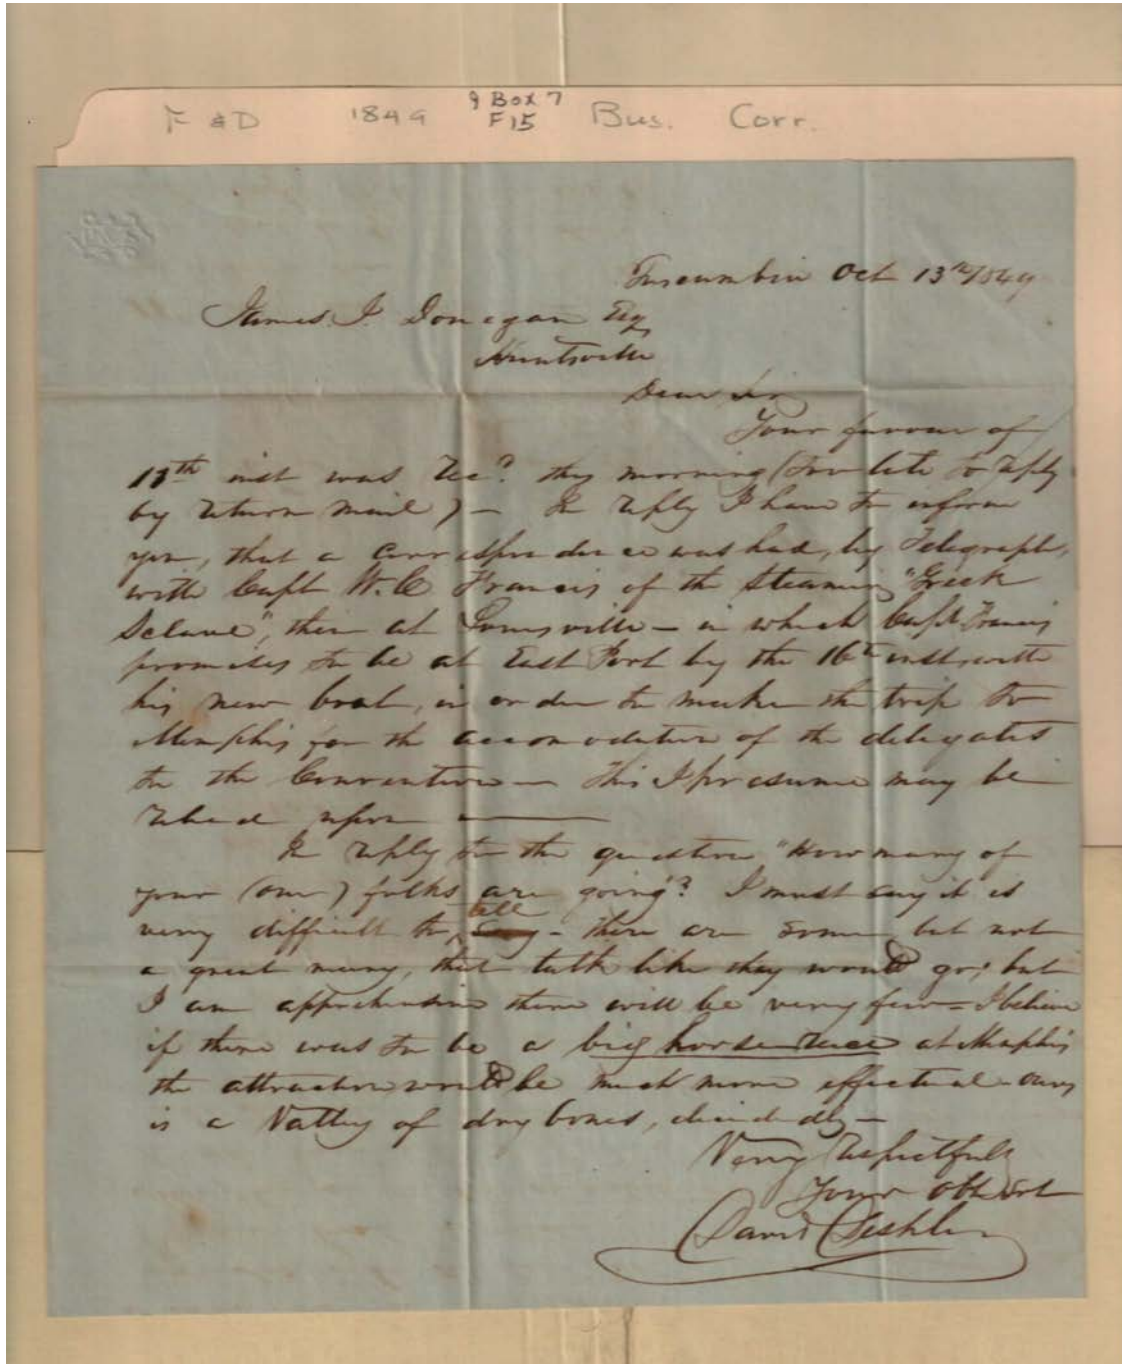 F & D 1849 Box 7 F 15 Bus. Corr.
Tuscumbia Oct 13th/1849
James J. Donegan Esq
Huntsville
Dear Sir
Your favour of
11th inst was rec? this morning (too late to reply
by return mail) - In reply I have to inform
you, that a correspondence was had, by Telegraph,
with Capt W. C. Francis of the Steamer "Greek
Sclave", then at Louisville - in which Capt Francis
promises to be at East Port by the 16th inst, with
his new boat, in order to make the trip to
Memphis for the accomodation of the delegates
to the Convention - This I presume may be
relied upon -
In reply to the question "How many of
your (our) folks are going"? I must say it is
very difficult to tell - there are some, but not
a great many, that talk like they would go; but
I am apprehensive there will be very few - I believe
if there was to be a big horse race at Memphis
the attraction would be much more effectual - ours
is a Valley of dry bones, decidedly -
Very respectfully
Your obt Svt
David Deshler